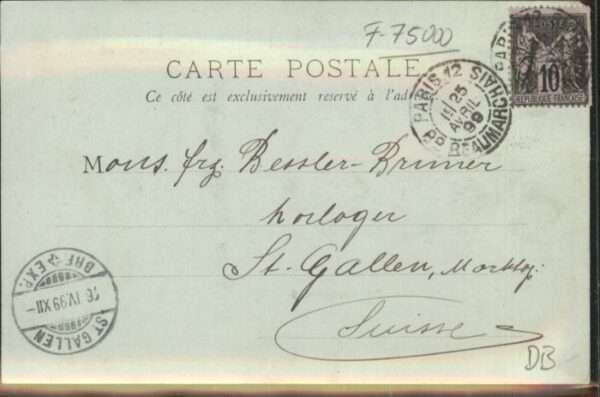 F-75000
CARTE POSTALE
Ce côté est exclusivement reservé à l'ad
PARIS 12
BD BEAUMARCHAIS
25
AVRIL
99
PARIS 12
POSTES
10
REPUBLIQUE FRANÇAISE
Mons. frz. Bessler-Brunner
horloger
St. Gallen,
Suisse
ST GALLEN
BRF EXP.
26. IV. 99 XII-
DB